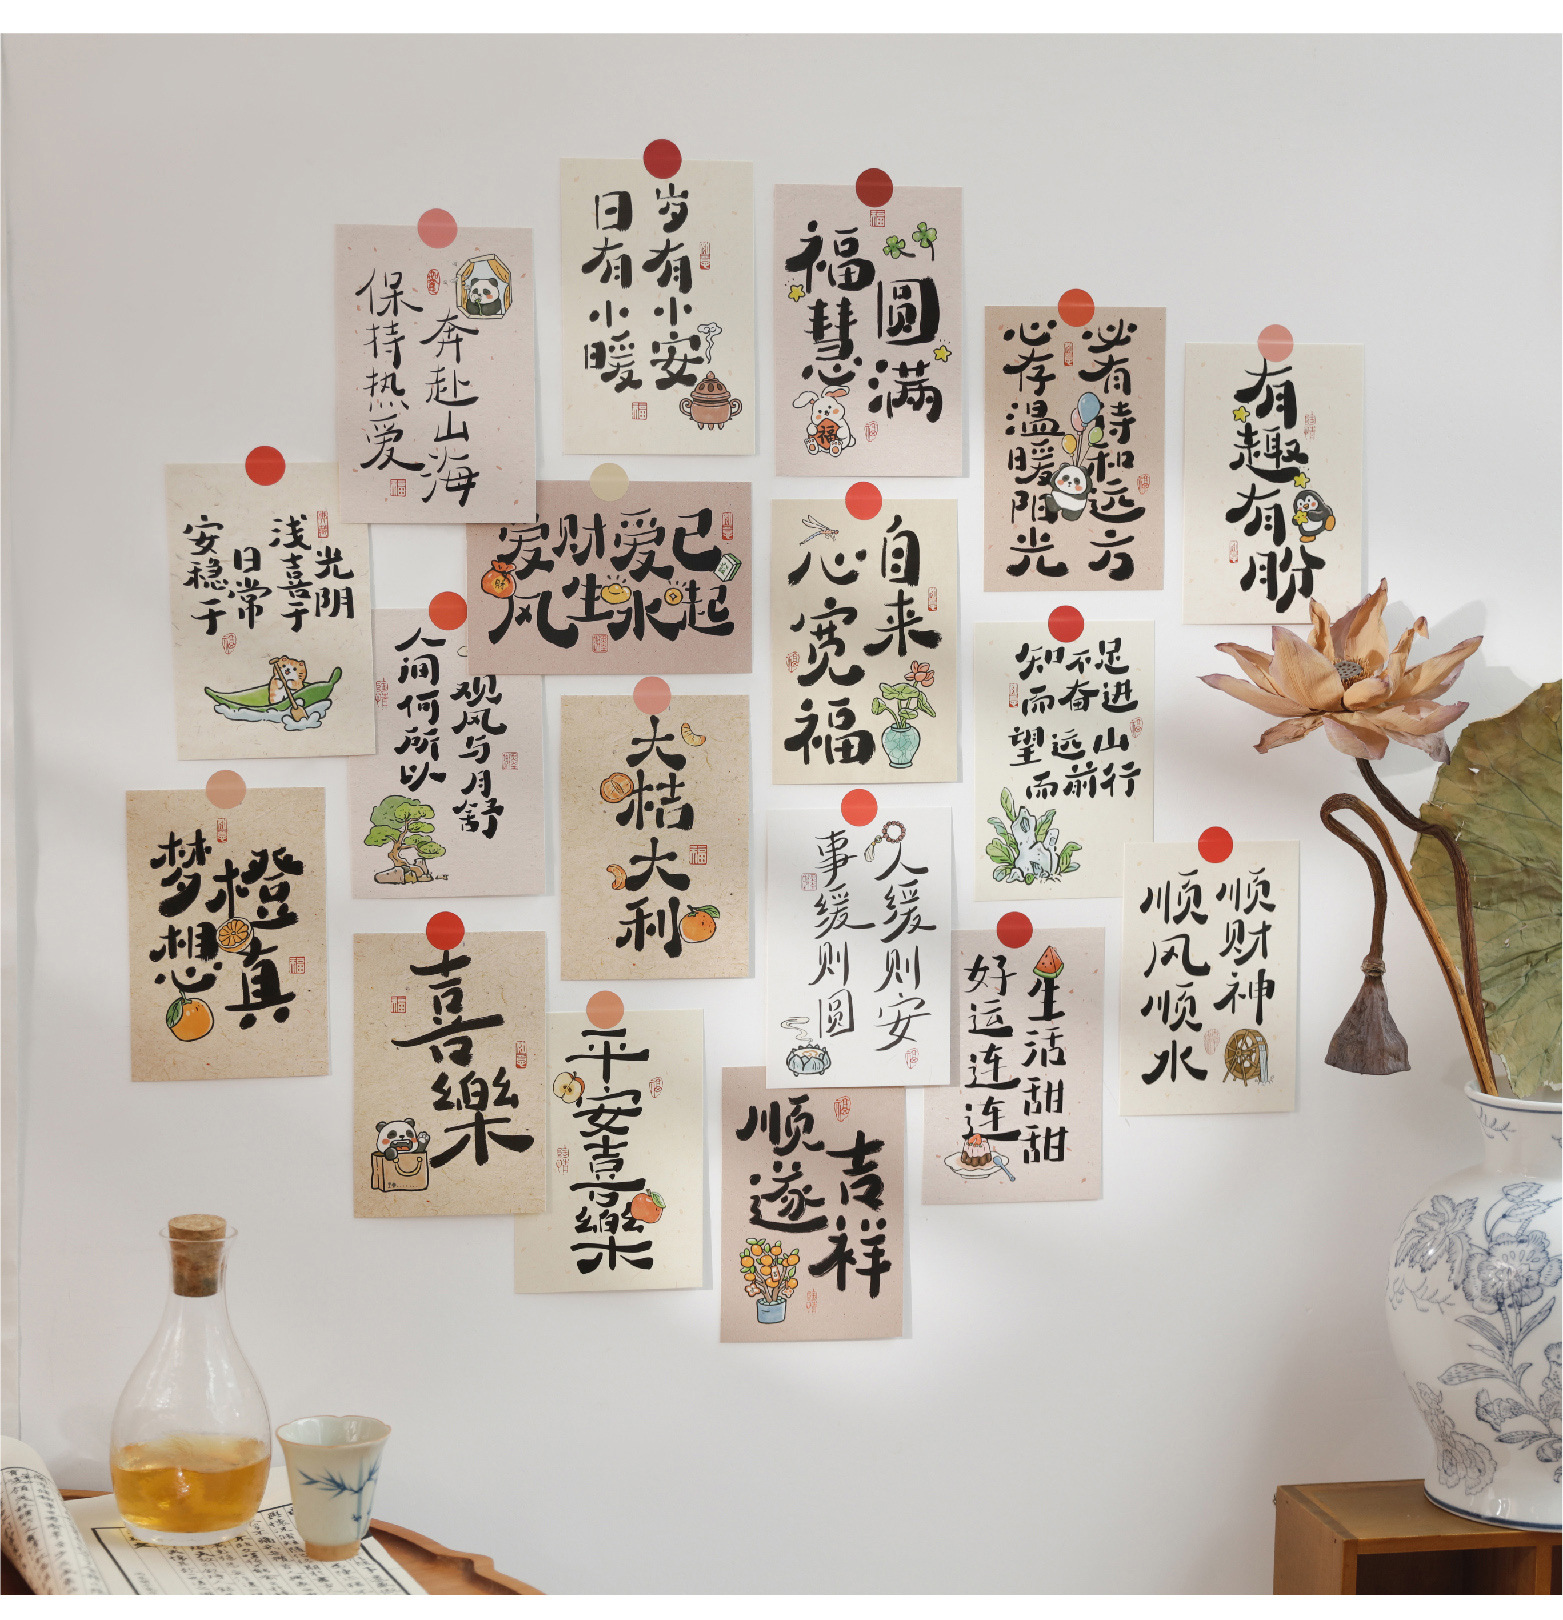 保持热爱
奔赴山海
岁有小安
日有小暖
福慧
圆满
心存温暖阳光
必有诗和远方
有趣有盼
浅喜于光阴
安稳于日常
爱财爱己
风生水起
心宽
自来
福
知不足
而奋进
望远山
而前行
人间何所以
观风与月舒
大桔大利
梦想橙真
喜樂
平安喜樂
人缓则安
事缓则圆
生活甜甜
好运连连
顺财神
顺风顺水
顺遂
吉祥